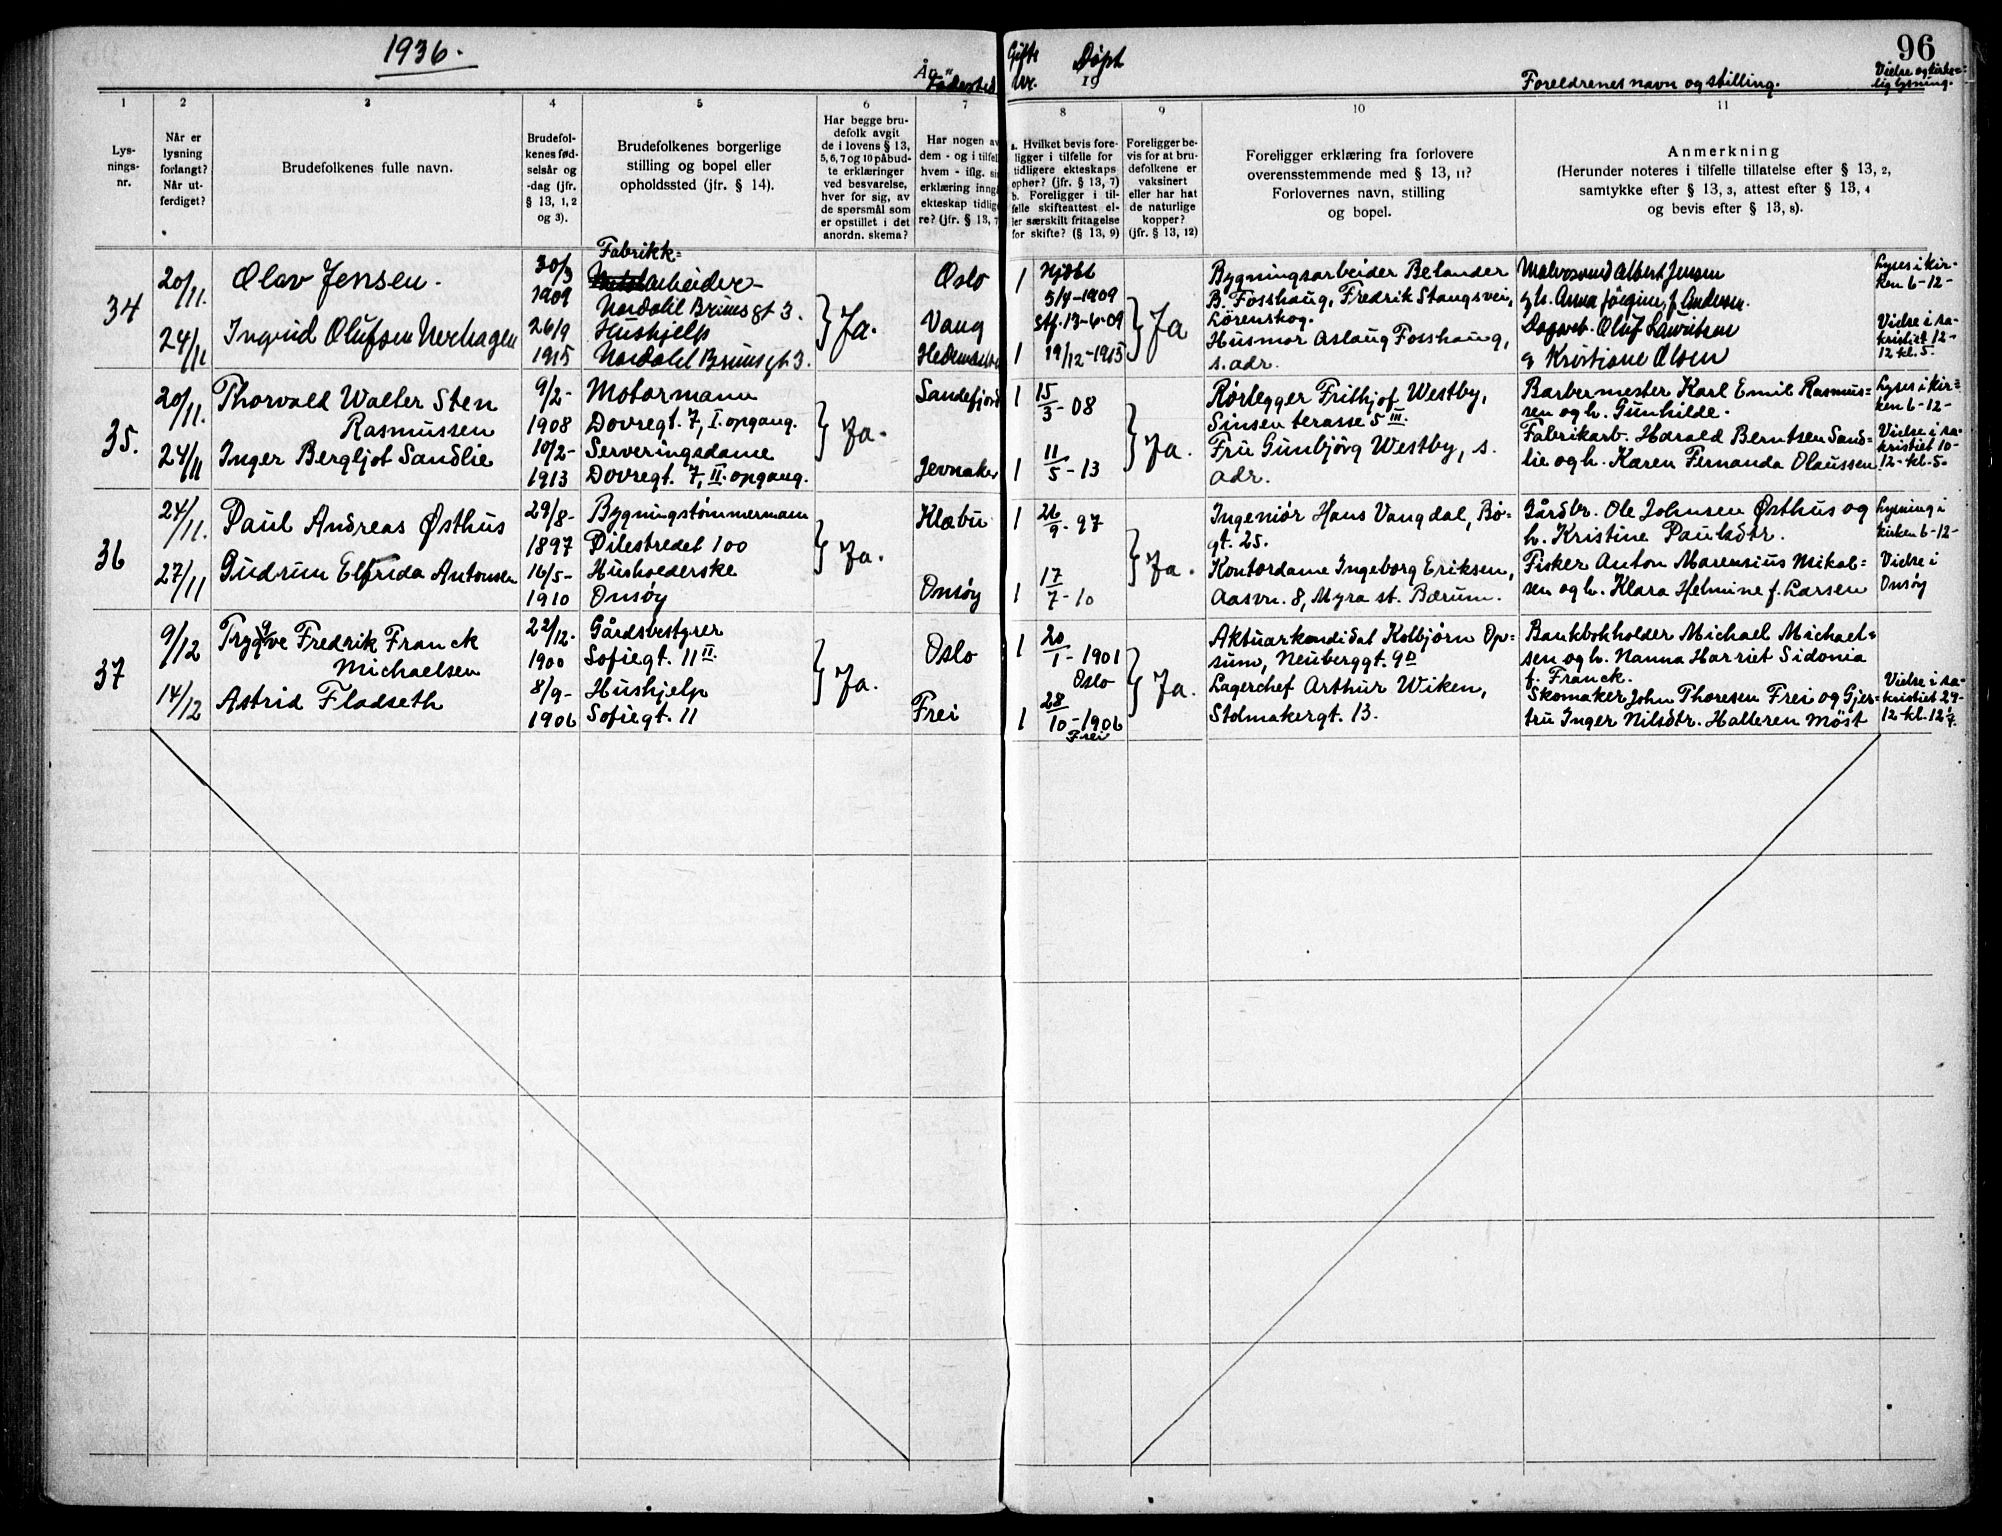 1936.
År
Fødested
Gifte
nr.
Døpt
19
Foreldrenes navn og stilling.
96
Vielse og kirke=
lig lysning.
1
2
3
4
5
6
7
8
9
10
11
Lys-
nings-
nr.
Når er
lysning
forlangt?
Når ut-
ferdiget?
Brudefolkenes fulle navn.
Brudefol-
kenes fød-
selsår og
-dag (jfr.
§ 13, 1, 2
og 3).
Brudefolkenes borgerlige
stilling og bopel eller
opholdssted (jfr. § 14).
Har begge bru-
defolk avgit
de i lovens § 13,
5, 6, 7 og 10 påbud-
te erklæringer
ved besvarelse,
hver for sig, av
de spørsmål som
er opstillet i det
anordn. skema?
Har nogen av
dem - og i tilfelle
hvem - iflg.
erklæring inngå
ekteskap tidlige
re? (jfr. § 13, 7
a. Hvilket bevis fore-
ligger i tilfelle for
tidligere ekteskaps
ophør? (jfr. § 13, 7)
b. Foreligger i til-
felle skifteattest el-
ler særskilt fritagelse
for skifte? (§ 13, 9)
Foreligger be-
vis for at bru-
defolkene er
vaksinert
eller har hat
de naturlige
kopper?
(jfr. § 13, 12)
Foreligger erklæring fra forlovere
overensstemmende med § 13, 11?
Forlovernes navn, stilling
og bopel.
Anmerkning
(Herunder noteres i tilfelle tillatelse efter § 13, 2,
samtykke efter § 13, 3, attest efter § 13, 4
og bevis efter § 13, 8).
34
20/11.
24/11
Olav Jensen.
Ingrid Olufsen Nerhagen
30/3
1909
26/9
1915
Fabrikk=
arbeider
Nordahl Brunsgt 3.
Hushjelp
Nordahl Brunsgt 3.
Ja.
Oslo
Vang
Hedemarken
1
Hjdbt
5/4-1909
Stf. 13-6-09
1
19/12-1915
Ja
Bygningsarbeider Belander
B. Fosshaug, Fredrik Stangsvei,
Lørenskog.
Husmor Aslaug Fosshaug,
s. adr.
Albert Jensen
og h. Anna Jørgine f. Andersen.
Oluf Lauritsen
og Kristiane Olsen
Lyses i kir-
ken 6-12-
Vielse i sa-
kristiet 12-
12 kl. 5.
35.
20/11.
24/11
Thorvald Walter Sten
Rasmussen
Inger Bergljot Sandlie
9/2-
1908
10/2-
1913
Motormann
Dovregt. 7, I. opgang.
Serveringsdame
Dovregt. 7, II. opgang.
Ja.
Sandefjord
Jevnaker
1
15/3-08
1
11/5-13
Ja.
Rørlegger Frithjof Westby,
Sinsen terasse 5 III.
Fru Gunbjörg Westby, s.
adr.
Barbermester Karl Emil Rasmus=
sen og h. Gunhilde.
Fabrikarb. Harald Berntsen Sand-
lie og h. Karen Fernanda Olaussen
Lyses i kir=
ken 6-12-
Vielse i sa-
kristiet 10-
12- kl. 5.
36
24/11.
27/11
Paul Andreas Østhus
Gudrun Elfrida Antonsen
29/8-
1897
16/5-
1910
Bygningstømmermann
Pilestredet 100
Husholderske
Onsøy
Ja.
Klæbu
Onsøy
1
26/9-97
1
17/7-10
Ja.
Ingeniør Hans Vangdal, Bø-
gt. 25.
Kontordame Ingeborg Eriksen,
Aasvn. 8, Myra st. Bærum.
Gårdbr. Ole Johnsen Østhus og
h. Kristine Paulsdtr.
Fisker Anton Marensius Mikal=
sen og h. Klara Helmine f. Larsen
Lysning i
kirken 6-12-
Vielse i
Onsøy
37
9/12
14/12
Trygve Fredrik Franck
Michaelsen
Astrid Fladseth
22/12-
1900
8/9-
1906
Gårdsbestyrer
Sofiegt. 11 II
Hushjelp
Sofiegt. 11
Ja.
Oslo
Frei
1
20/1-1901
Oslo
1
28/10-1906
Frei
Ja.
Aktuarkandidat Kolbjørn Op=
sum, Neuberggt. 9 D
Lagerchef Arthur Wiken,
Stolmakergt. 13.
Bankbokholder Michael Michael=
sen og h. Nanna Harriet Sidonia
f. Franck.
Skomaker John Thoresen Frei og Gjer=
tru Inger Nilsdtr. Halleren Møst
Vielse i sa-
kristiet 29-
12-kl. 12 1/4.